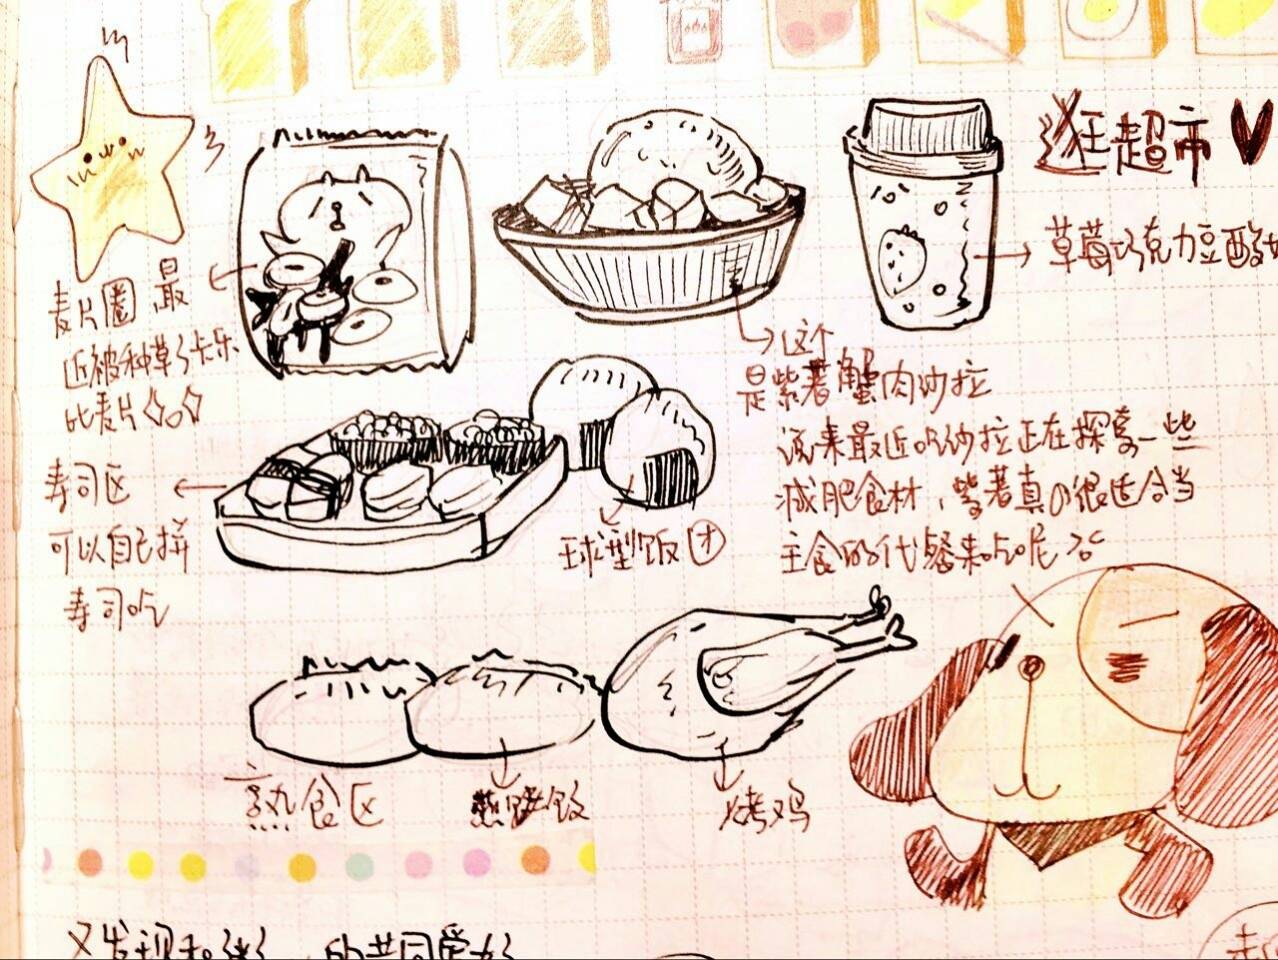 逛超市
草莓巧克力豆酸
麦片圈 最
近被种草了卡乐
比麦片
这个
是紫薯蟹肉沙拉
说来最近吃沙拉正在探索一些
减肥食材，紫薯真的很适合当
主食的代餐来吃呢
寿司区
可以自己拼
寿司吃
球型饭团
熟食区
蒸饺
烤鸡
又发现和
的共同爱好